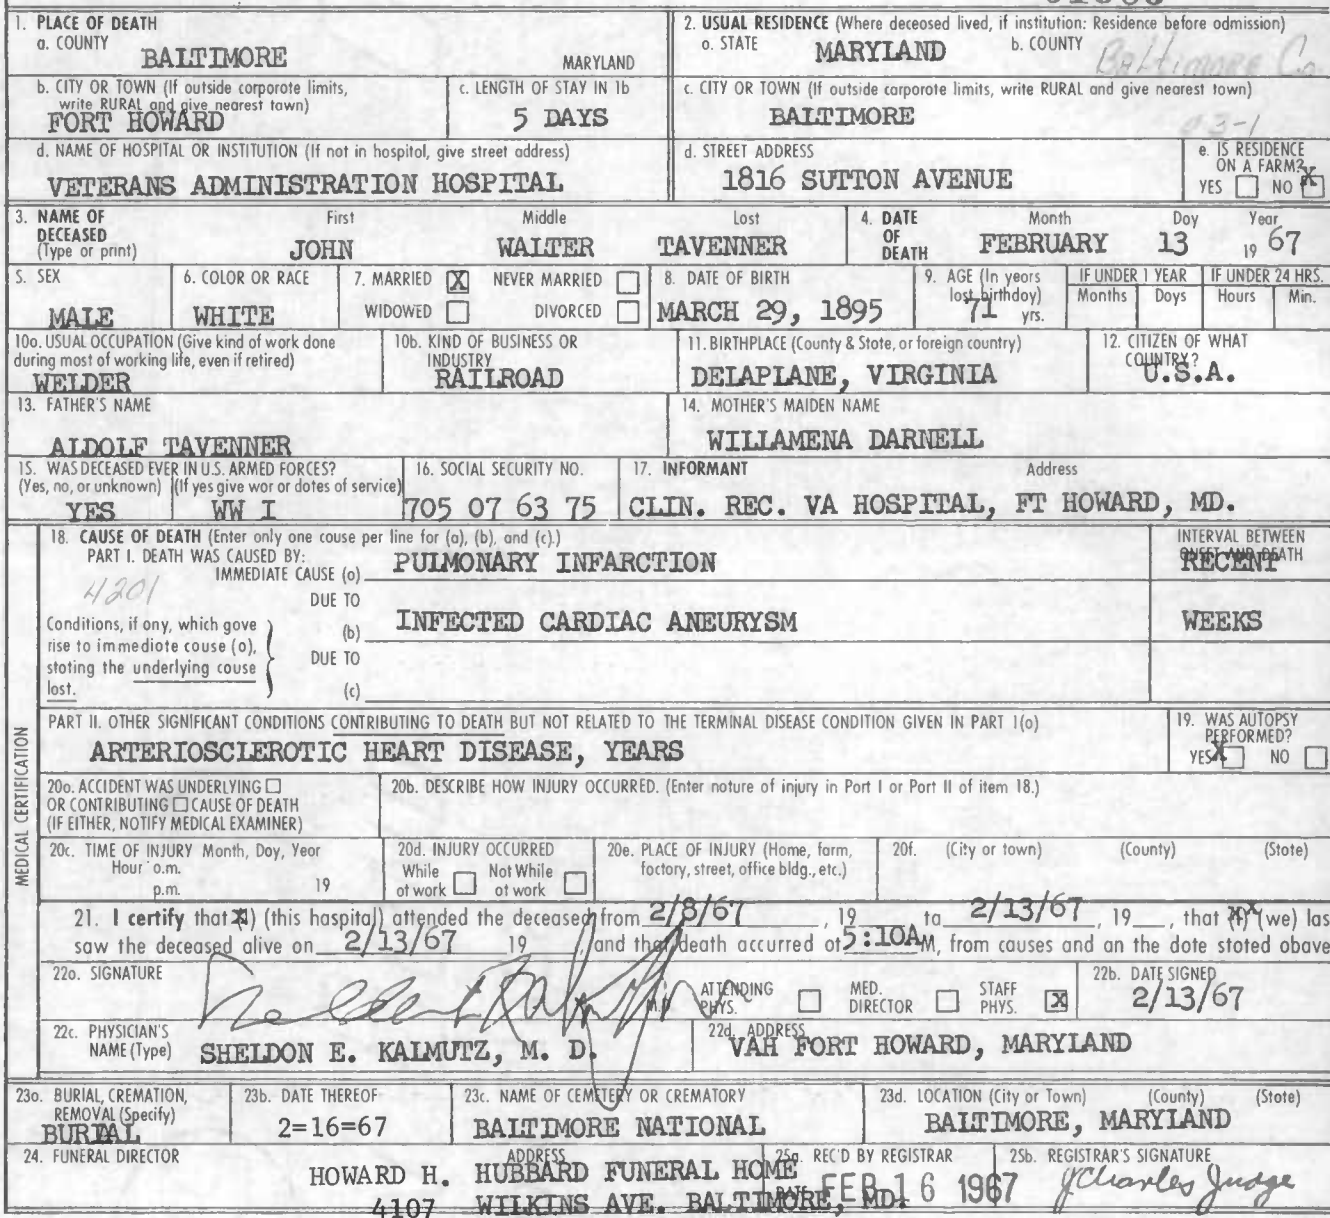 1. PLACE OF DEATH
a. COUNTY
BALTIMORE
MARYLAND
2. USUAL RESIDENCE (Where deceased lived, if institution: Residence before admission)
a. STATE
MARYLAND
b. COUNTY
Baltimore Co.
b. CITY OR TOWN (If outside corporate limits, write RURAL and give nearest town)
FORT HOWARD
c. LENGTH OF STAY IN 1b
5 DAYS
c. CITY OR TOWN (If outside corporate limits, write RURAL and give nearest town)
BALTIMORE
03-1
d. NAME OF HOSPITAL OR INSTITUTION (If not in hospital, give street address)
VETERANS ADMINISTRATION HOSPITAL
d. STREET ADDRESS
1816 SUTTON AVENUE
e. IS RESIDENCE ON A FARM?
YES NO X
3. NAME OF DECEASED (Type or print)
First Middle Last
JOHN WALTER TAVENNER
4. DATE OF DEATH
Month Day Year
FEBRUARY 13 19 67
5. SEX
MALE
6. COLOR OR RACE
WHITE
7. MARRIED X NEVER MARRIED
WIDOWED DIVORCED
8. DATE OF BIRTH
MARCH 29, 1895
9. AGE (In years last birthday)
71 yrs.
IF UNDER 1 YEAR
Months Days
IF UNDER 24 HRS.
Hours Min.
10a. USUAL OCCUPATION (Give kind of work done during most of working life, even if retired)
WELDER
10b. KIND OF BUSINESS OR INDUSTRY
RAILROAD
11. BIRTHPLACE (County & State, or foreign country)
DELAPLANE, VIRGINIA
12. CITIZEN OF WHAT COUNTRY?
U.S.A.
13. FATHER'S NAME
ALDOLF TAVENNER
14. MOTHER'S MAIDEN NAME
WILLAMENA DARNELL
15. WAS DECEASED EVER IN U.S. ARMED FORCES?
(Yes, no, or unknown) (If yes give war or dates of service)
YES WW I
16. SOCIAL SECURITY NO.
705 07 63 75
17. INFORMANT Address
CLIN. REC. VA HOSPITAL, FT HOWARD, MD.
MEDICAL CERTIFICATION
18. CAUSE OF DEATH (Enter only one cause per line for (a), (b), and (c).)
PART I. DEATH WAS CAUSED BY:
IMMEDIATE CAUSE (a) PULMONARY INFARCTION
INTERVAL BETWEEN ONSET AND DEATH
RECENT
4201
DUE TO
Conditions, if any, which gave rise to immediate cause (a), stating the underlying cause last.
(b) INFECTED CARDIAC ANEURYSM
WEEKS
DUE TO
(c)
PART II. OTHER SIGNIFICANT CONDITIONS CONTRIBUTING TO DEATH BUT NOT RELATED TO THE TERMINAL DISEASE CONDITION GIVEN IN PART I(a)
ARTERIOSCLEROTIC HEART DISEASE, YEARS
19. WAS AUTOPSY PERFORMED?
YES X NO
20a. ACCIDENT WAS UNDERLYING
OR CONTRIBUTING CAUSE OF DEATH
(IF EITHER, NOTIFY MEDICAL EXAMINER)
20b. DESCRIBE HOW INJURY OCCURRED. (Enter nature of injury in Part I or Part II of item 18.)
20c. TIME OF INJURY Month, Day, Year
Hour a.m.
p.m. 19
20d. INJURY OCCURRED
While at work Not While at work
20e. PLACE OF INJURY (Home, farm, factory, street, office bldg., etc.)
20f. (City or town) (County) (State)
21. I certify that (I) (this hospital) attended the deceased from 2/8/67, 19 to 2/13/67, 19, that (I) (we) las
saw the deceased alive on 2/13/67 19 and that death occurred at 5:10AM, from causes and on the date stated above
22a. SIGNATURE
M.D.
ATTENDING PHYS. MED. DIRECTOR STAFF PHYS. X
22b. DATE SIGNED
2/13/67
22c. PHYSICIAN'S NAME (Type)
SHELDON E. KALMUTZ, M. D.
22d. ADDRESS
VAH FORT HOWARD, MARYLAND
23a. BURIAL, CREMATION, REMOVAL (Specify)
BURIAL
23b. DATE THEREOF
2=16=67
23c. NAME OF CEMETERY OR CREMATORY
BALTIMORE NATIONAL
23d. LOCATION (City or Town) (County) (State)
BALTIMORE, MARYLAND
24. FUNERAL DIRECTOR ADDRESS
HOWARD H. HUBBARD FUNERAL HOME
4107 WILKINS AVE. BALTIMORE, MD.
25a. REC'D BY REGISTRAR
DATE FEB 16 1967
25b. REGISTRAR'S SIGNATURE
J Charles Judge